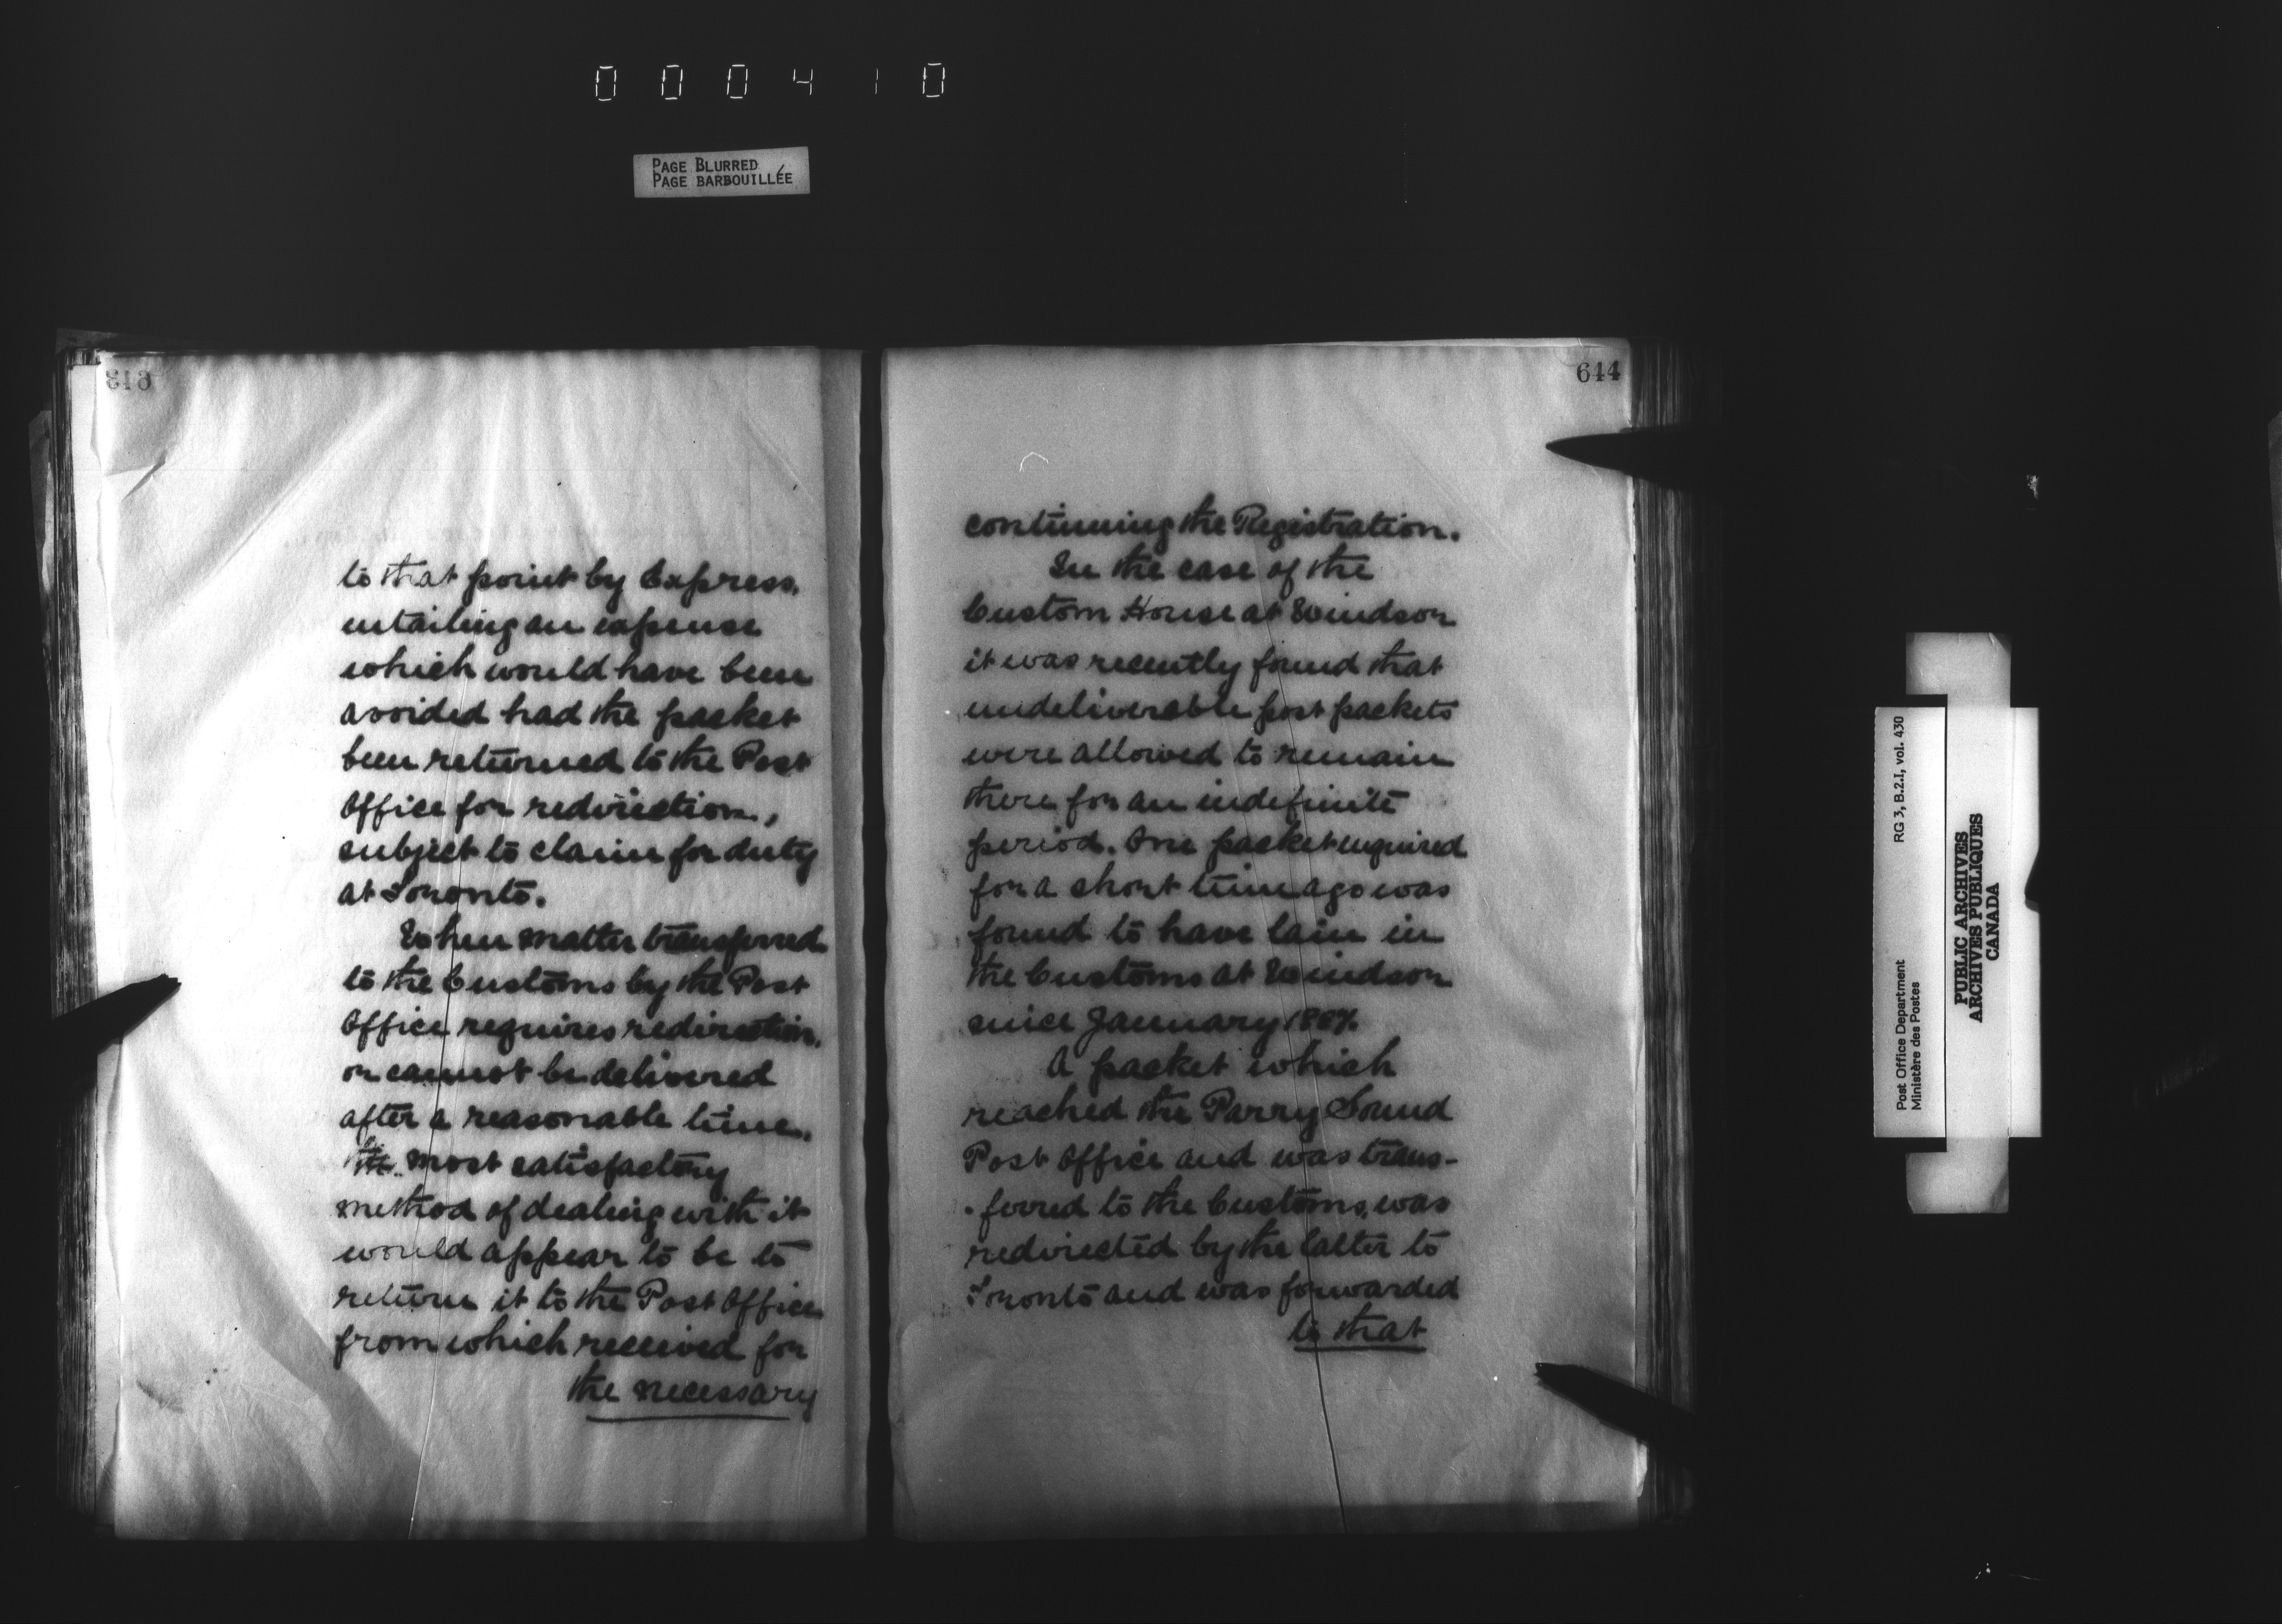 000410
PAGE BLURRED
PAGE BARBOUILLÉE
to that point by Express,
entailing an expense
which would have been
avoided had the packet
been returned to the Post
Office for redirection,
subject to claim for duty
at Toronto.
When matter transferred
to the Customs by the Post
Office requires redirection,
or cannot be delivered
after a reasonable time,
the most satisfactory
method of dealing with it
would appear to be to
return it to the Post Office
from which received for
the necessary
644
continuing the Registration.
In the case of the
Custom House at Windsor
it was recently found that
undeliverable post packets
were allowed to remain
there for an indefinite
period. One packet enquired
for a short time ago was
found to have lain in
the Customs at Windsor
since January
A packet which
reached the Parry Sound
Post Office and was trans-
ferred to the Customs, was
redirected by the latter to
Toronto and was forwarded
to that
RG 3, B.2.I, vol. 430
Post Office Department
Ministère des Postes
PUBLIC ARCHIVES
ARCHIVES PUBLIQUES
CANADA